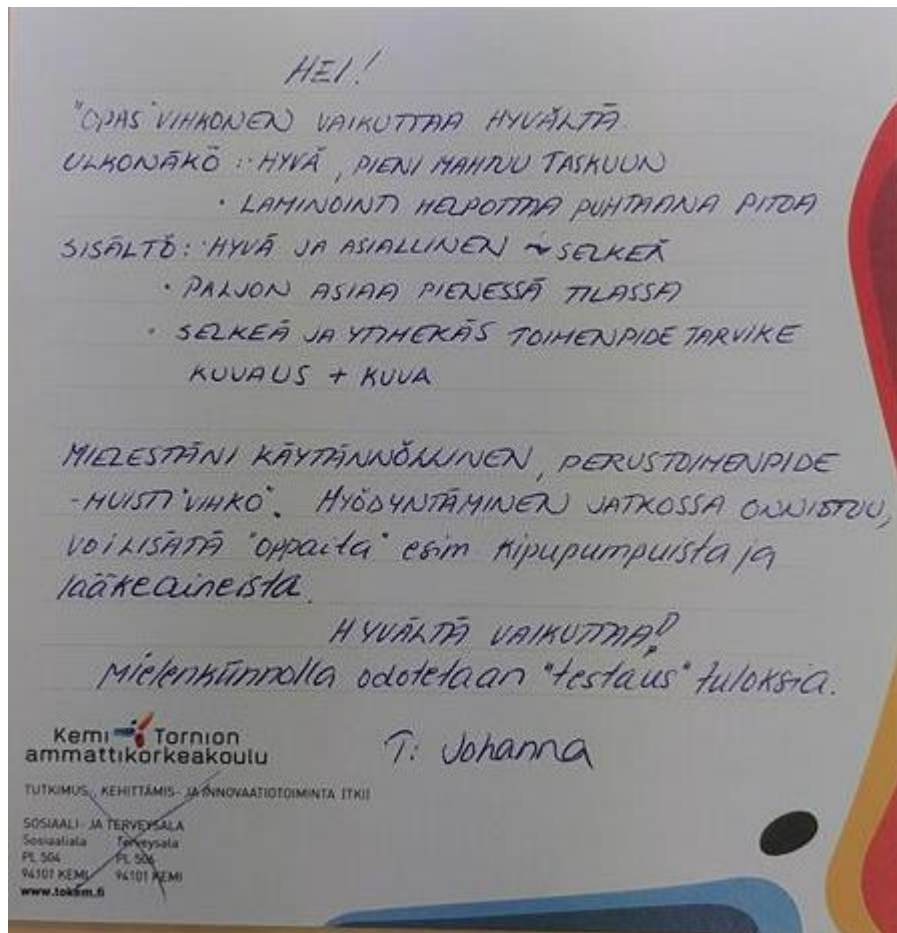 HEI!
"OPAS" VIHKONEN VAIKUTTAA HYVÄLTÄ.
ULKONÄKÖ: · HYVÄ, PIENI MAHTUU TASKUUN
· LAMINOINTI HELPOTTAA PUHTAANA PITOA
SISÄLTÖ: · HYVÄ JA ASIALLINEN ~ SELKEÄ
· PALJON ASIAA PIENESSÄ TILASSA
· SELKEÄ JA YTIMEKÄS TOIMENPIDE TARVIKE
KUVAUS + KUVA
MIELESTÄNI KÄYTÄNNÖLLINEN, PERUSTOIMENPIDE
-MUISTI"VIHKO". HYÖDYNTÄMINEN JATKOSSA ONNISTUU,
VOI LISÄTÄ "oppaita" esim kipupumpuista ja
lääkeaineista.
HYVÄLTÄ VAIKUTTAA!
Mielenkiinnolla odotetaan "testaus" tuloksia.
T: Johanna
Kemi Tornion
ammattikorkeakoulu
TUTKIMUS-, KEHITTÄMIS- JA INNOVAATIOTOIMINTA (TKI)
SOSIAALI- JA TERVEYSALA
Sosiaaliala Terveysala
PL 504 PL 506
94101 KEMI 94101 KEMI
www.tokem.fi